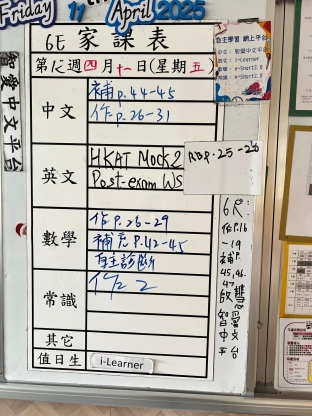 Friday
11
April
2025
6E 家課表
第12週四月十一日(星期五)
自主學習 網上平台
中文:智愛中文平台
英文:i-Learner
智愛中文平台
中文
補 p.44-45
作 p.26-31
英文
HKAT Mock 2
Post-exam WS
RB p.25-26
數學
作 p.26-29
補充 p.42-45
自主診斷
常識
作 2
其它
值日生
i-Learner
6R:
作 p.16
-19
補 p.
45,46-
47
啟慧中
智愛文平台